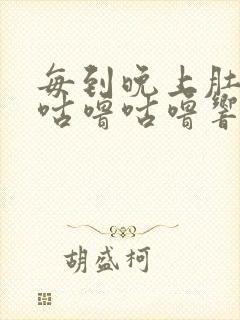 每到晚上肚
咕噜咕噜响
胡盛柯